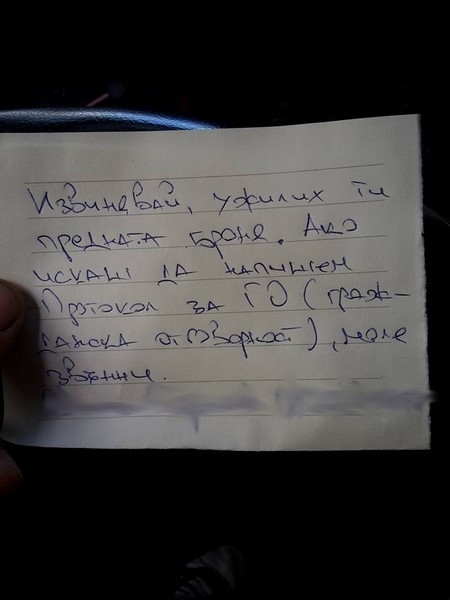 Извинявай, ужилих ти
предната броня. Ако
искаш да напишем
Протокол за ГО (граж-
данска отговорност), моля
звънни.